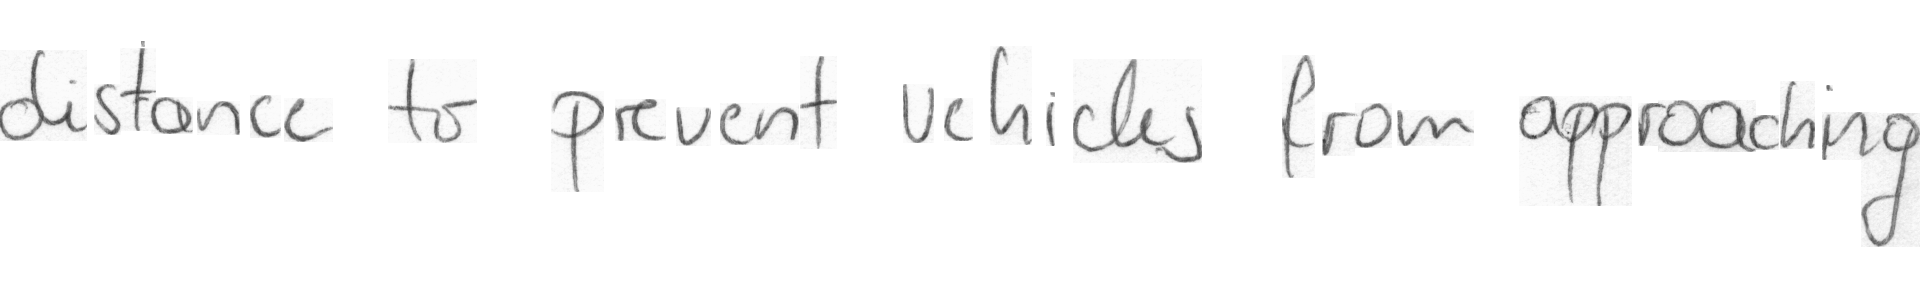 distance to prevent vehicles from approaching